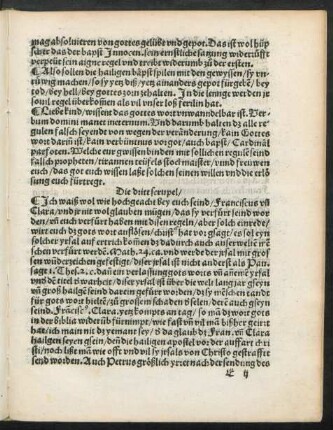 mag absolvieren von gottes gelübt vnd gepot. Das ist wol hüp
scher das der bapst Innocen. sein ernstliche satzung widerrüfft
verpeüt sein aigne regel vnd treibt widerumb zů der ersten.
¶ Also sollen die hailigen bäpst spilen mit den gewyssen/ sy vn-
rüwig machen/ so sy yetz diß/ yetz ainanders gepot fürgebẽ/ bey
tod/ bey hell/ bey gottes zorn zehalten. In die lenge werden je
souil regel überkomen als vil vnser loß ferlin hat.
¶ Liebe kind/ wissent das gottes wort vnwannbelbar ist. Ver-
bum domini manet in eternum. Vnd darumb halten dz alle re
gulen falsch seyendt von wegen der veränderung/ kain Gottes
wort darin ist/ kain verbüntnus vor got/ auch bapst/ Cardinäl
parfoten. Welche eür gwissen binden mit sollichen regulẽ seind
falsch propheten/ tirannen teüfels stockmaister/ vnnd freuwen
euch/ das got euch wissen laßt solchen seinen willen vnd die erlö
sung euch fürtregt.
Die dritt sempel/
¶ Ich waiß wol wie hochgeacht bey euch seind/ Franciscus vñ
Clara/ vnd je nit wol glauben mügen/ das sy verfürt seind wor
den/ vñ euch verfürt haben mit disen regeln/ aber solch einrede/
wirt euch dz gots wort auflösen/ christꝰ hat vorgsagt/ es sol eyn
solcher yrsal auf ertrich komẽ dz dadurch auch die außerwelte irẽ m̃e
schen verfürt werden. Math. 24. ca. vnd werd der yrsal mit gros-
sen wũderzeichen gefestiget/ diser yrsal ist nicht anderst als Pau.
sagt 1. Thes. 2. c. dañ ein verlassung gots worts vñ añemẽ yrsal
vnd dẽ titel der warheit/ diser yrsal ist über die welt lang jar gseyn
vñ groß hailige seind darein gefürt worden/ di sy mẽschen tandt
für gots wort hieltẽ/ zů grossem schaden vr selen/ derẽ auch gseyn
seind. Frãcisꝰ. Clara. yetz kompts an tag/ so mã dz wort gots
in der Biblia wider üb̃ fürnimpt/ wie fast vm̃ vñ mã bißher geirrt
hat/ ich main nit dz yemant sey/ d̃ da glaub dz Fran. vñ Clara
hailigen seyen gsein/ deñ die hailigen apostel vor der auffart chri
sti/ noch lißt mã wie offt vnd vil sy yrsals von Christo gestrafft
worden. Auch Petrus größlich yrret nach der sendung des
¢ ij